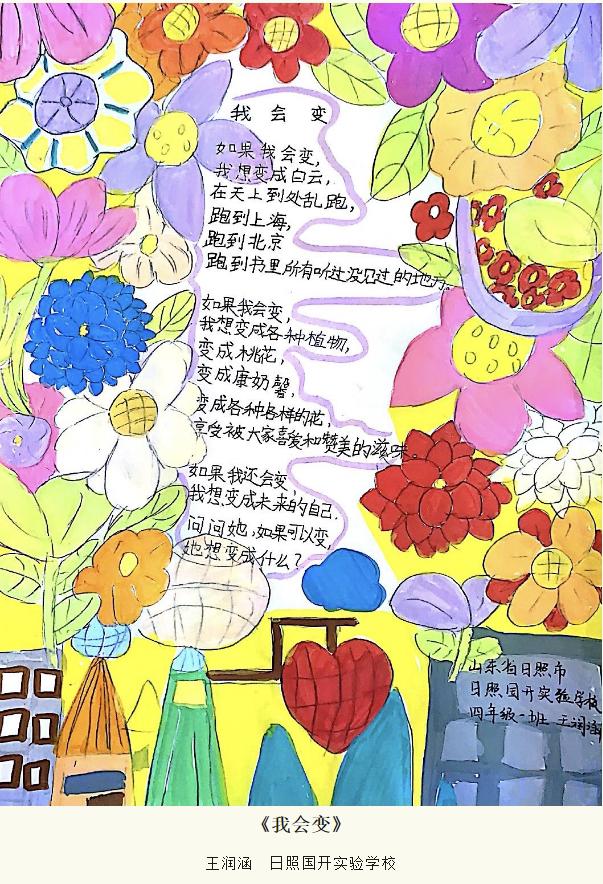 我会变
如果我会变，
我想变成白云，
在天上到处乱跑，
跑到上海，
跑到北京
跑到书里所有听过没见过的地方。
如果我会变，
我想变成各种植物，
变成桃花，
变成康奶馨，
变成各种各样的花，
享受被大家喜爱和赞美的滋味。
如果我还会变，
我想变成未来的自己，
问问她，如果可以变，
她想变成什么？
山东省日照市
日照国开实验学校
四年级一班 王润涵
《我会变》
王润涵 日照国开实验学校